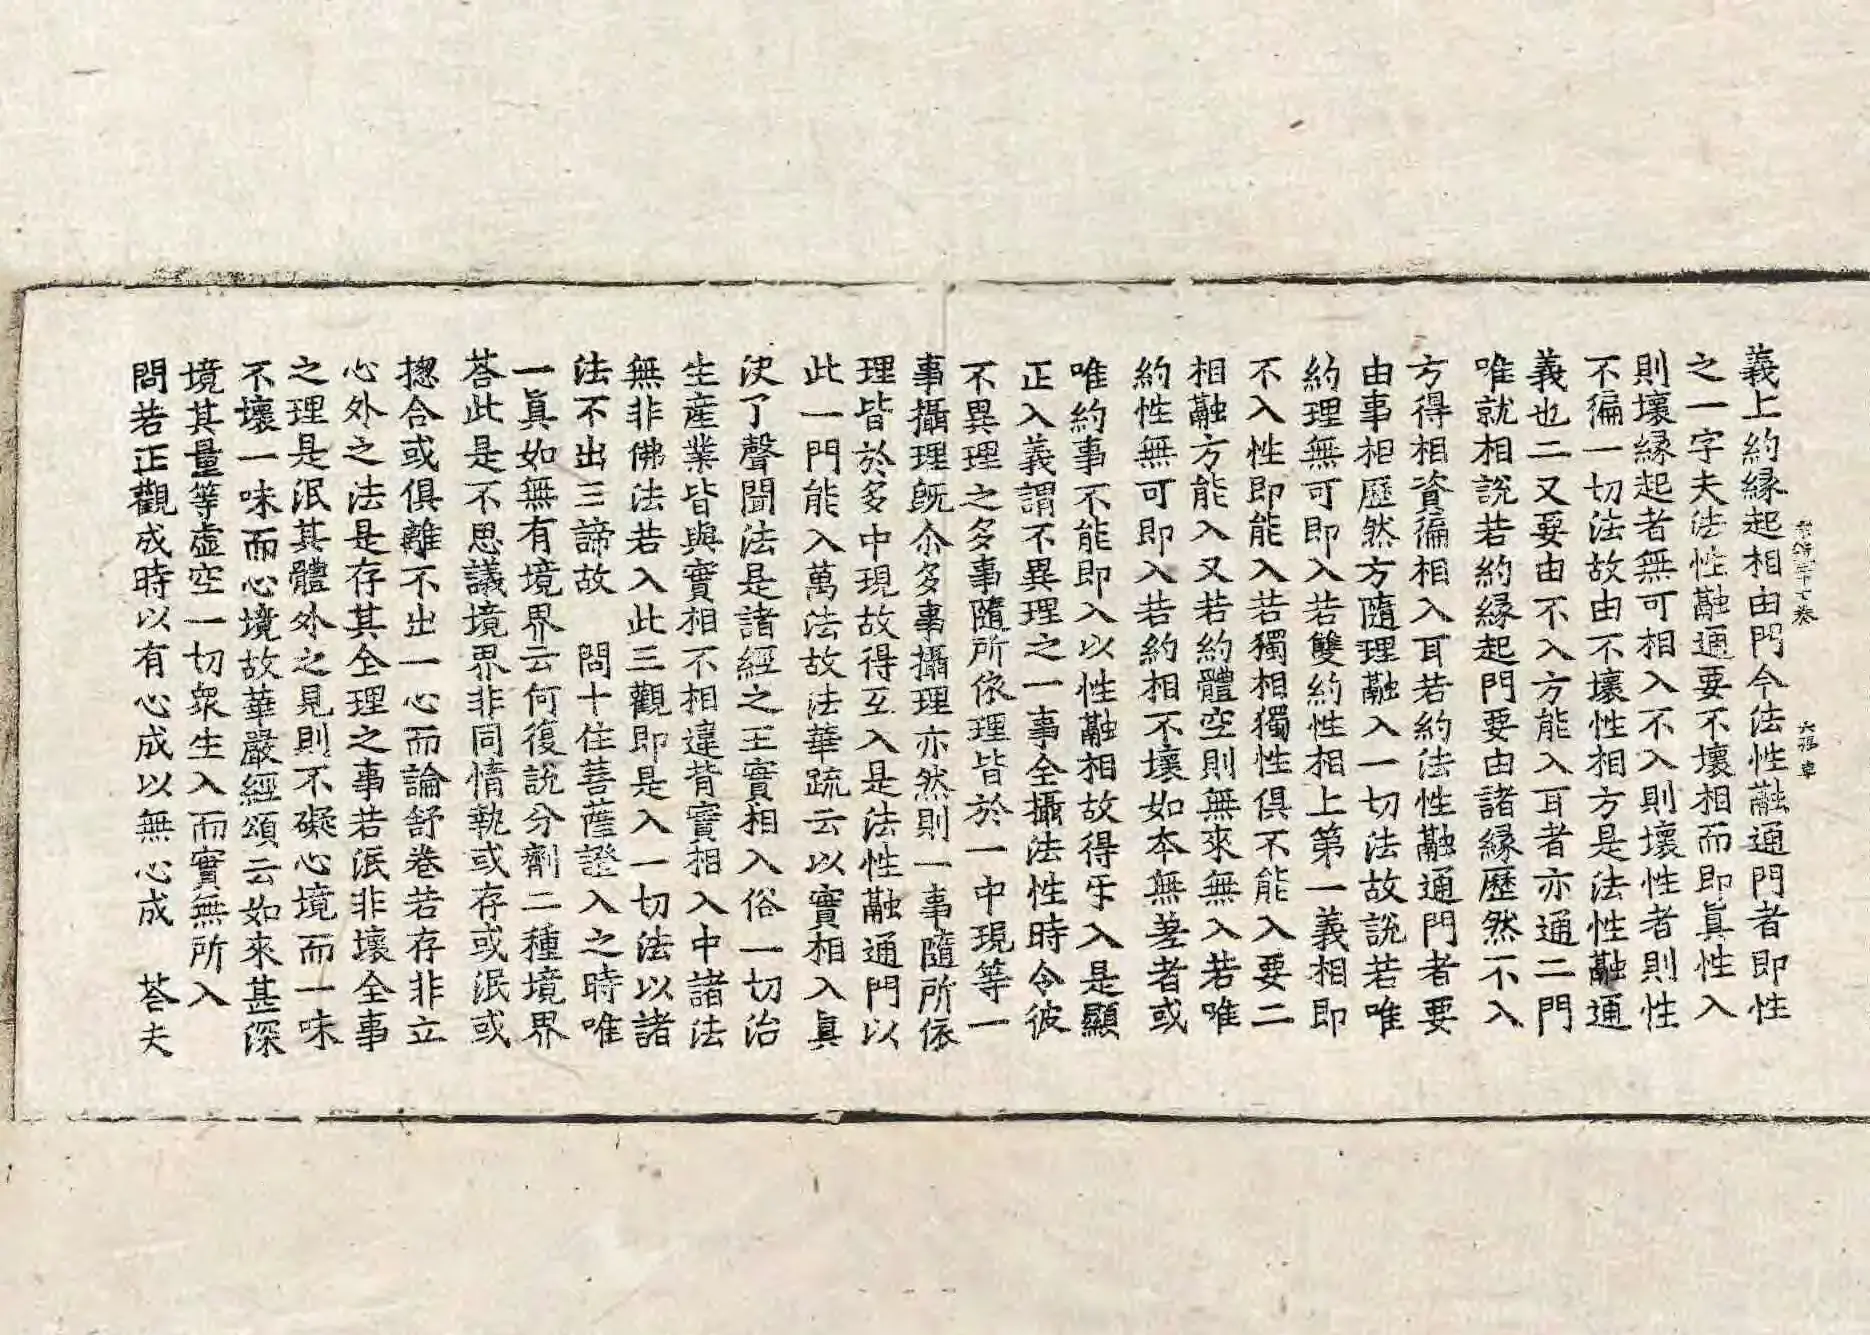 義上約縁起相由門今法性融通門者即性
之一字夫法性融通要不壞相而即真性入
則壞縁起者無可相入不入則壞性者則性
不徧一切法故由不壞性相方是法性融通
義也二又要由不入方能入耳者亦通二門
唯就相說若約縁起門要由諸縁歷然不入
方得相資徧相入耳若約法性融通門者要
由事相歷然方隨理融入一切法故說若唯
約理無可即入若雙約性相上第一義相即
不入性即能入若獨相獨性俱不能入要二
相融方能入又若約體空則無來無入若唯
約性無可即入若約相不壞如本無差者或
唯約事不能即入以性融相故得㸦入是顯
正入義謂不異理之一事全攝法性時令彼
不異理之多事隨所依理皆於一中現等一
事攝理旣尒多事攝理亦然則一事隨所依
理皆於多中現故得互入是法性融通門以
此一門能入萬法故法華疏云以實相入真
決了聲聞法是諸經之王實相入俗一切治
生產業皆與實相不相違背實相入中諸法
無非佛法若入此三觀即是入一切法以諸
法不出三諦故　問十住菩薩證入之時唯
一眞如無有境界云何復說分劑二種境界
荅此是不思議境界非同情執或存或泯或
揔合或俱離不出一心而論舒卷若存非立
心外之法是存其全理之事若泯非壞全事
之理是泯其體外之見則不礙心境而一味
不壞一味而心境故華嚴經頌云如來甚深
境其量等虛空一切衆生入而實無所入
問若正觀成時以有心成以無心成　荅夫